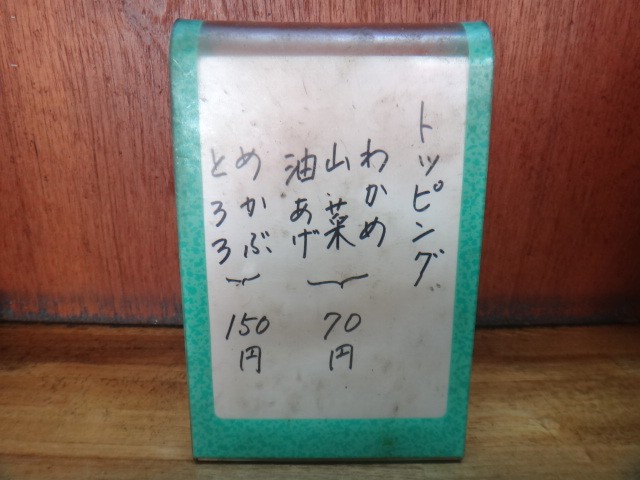 トッピング
わかめ
山菜
油あげ
70円
めかぶ
とろろ
150円